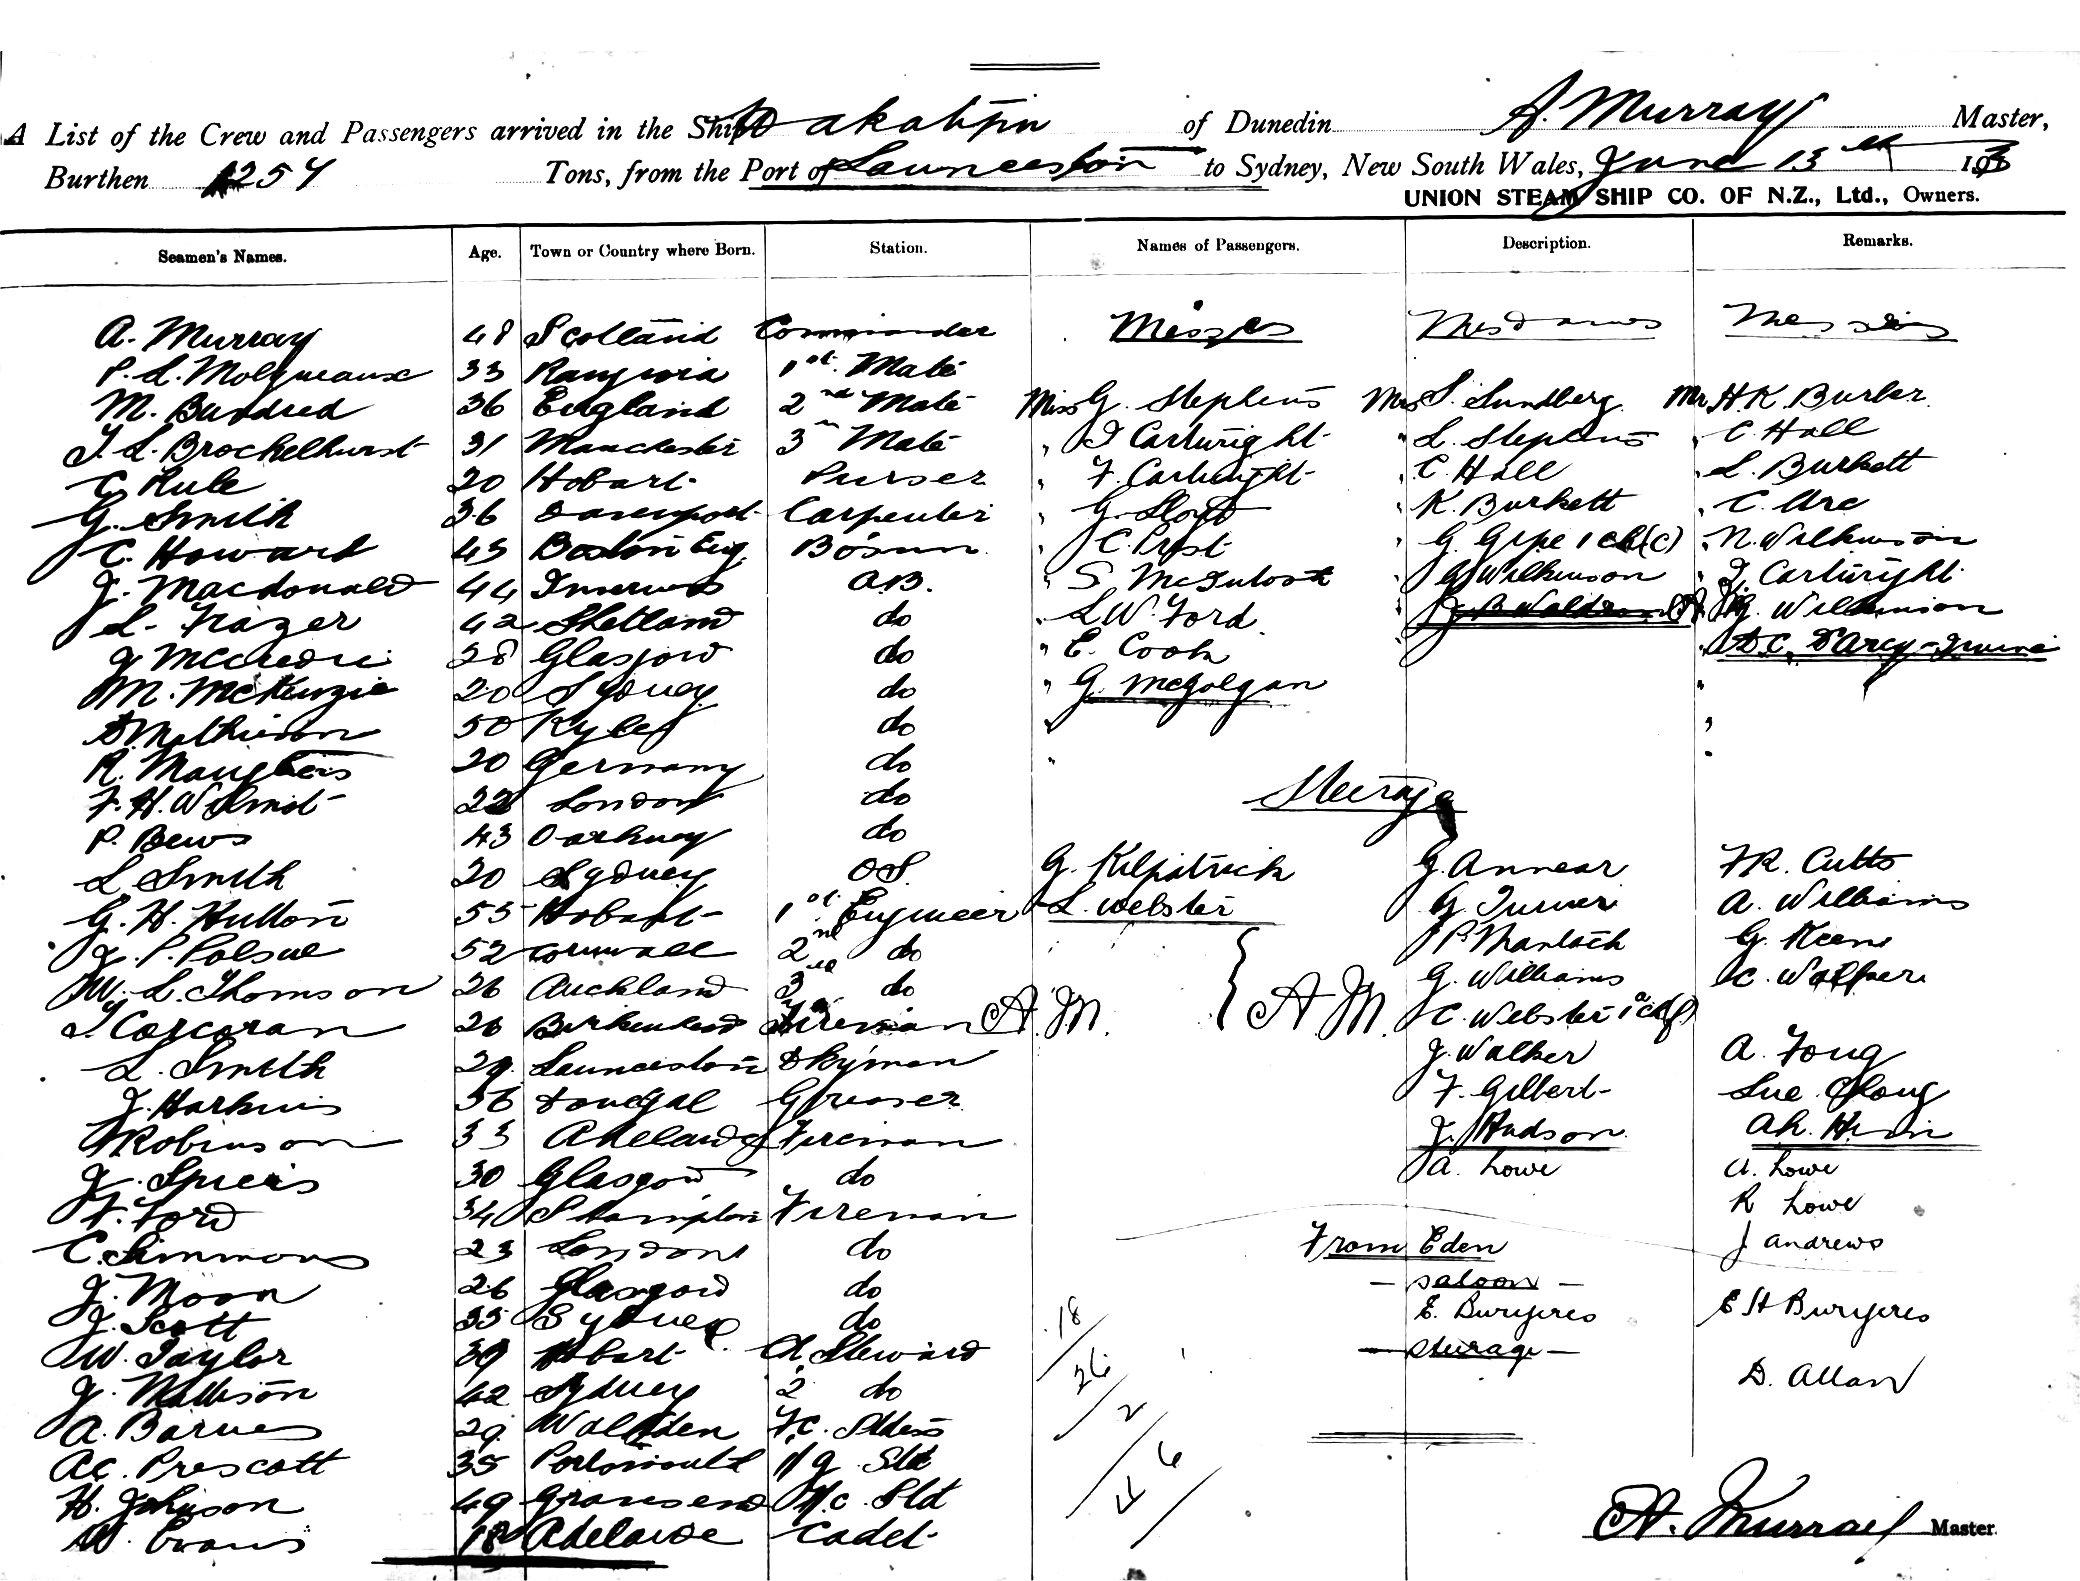 A List of the Crew and Passengers arrived in the Ship Wakatipu of Dunedin A. Murray Master,
Burthen 1254 Tons, from the Port of Launceston to Sydney, New South Wales, June 13th 193
UNION STEAM SHIP CO. OF N.Z., Ltd., Owners.
Seamen's Names. Age. Town or Country where Born. Station. Names of Passengers. Description. Remarks.
A. Murray 48 Scotland Commander Misses Mesdames Messrs
P. L. Molyneaux 33 1st Mate
M. Bundred 36 England 2nd Mate Miss G. Stephens Mrs S. Sundberg Mr H. K. Burler
T. L. Brockelhurst 31 Manchester 3 Mate " I Cartwright " L. Stephens " C. Hall
C. Rule 20 Hobart Purser " F. Cartwright " C. Hall " L. Burkett
G. Smith 36 Davenport Carpenter " G. Lloyd " K. Burkett " C. Are
C. Howard 43 Boston Eng Bosun " C. Prist " G. Gipe 1 ch (c) " N. Wilkinson
J. Macdonald 44 Inverness A.B. " S. McIntosh " G Wilkinson " I. Cartwright
L. Frazer 42 Shetland do " L W. Ford " G. Wilkinson
J McCredie 28 Glasgow do " E. Cook " D. C. D'Arcy-Irvine
M. McKenzie 20 Sydney do " G. McGolgan "
D Mathieson 50 Kyles do " "
R. Maughers 20 Germany do " "
F. H. Wilmot 22 London do Steerage
P. Bews 43 Oarkney do
L Smith 20 Sydney O.S. G. Kilpatrick G. Annear F R. Cutts
G. H. Hutton 55 Hobart 1st Engineer L. Webster G. Turner A. Williams
J. P. Polsue 52 Cornwall 2nd do P. Murtach G. Keene
W. L. Thomson 26 Auckland 3rd do G. Williams C. Walker
T Corcoran 26 Birkenhead Fireman A. M. A M. C. Webster 1 ch (f)
L. Smith 29 Launceston Dkyman J. Walker A. Foug
J. Harkins 36 Donegal Greaser F. Gilbert Sue Cloug
T Robinson 33 Adelaide Fireman J. Hudson Ah. Hin
J. Speirs 30 Glasgow do A. Lowe A. Lowe
F. Ford 34 Fireman R Lowe
C. Simmons 23 London do From Eden J Andrews
J. Moon 26 Glasgow do — Saloon —
J. Scott 35 Sydney do 18 E. Buryeres E H Buryeres
W. Taylor 39 Hobart Ch. Steward — Steerage —
J. Mattison 42 Sydney 2 do 26 D. Allan
A. Barnes 29 Walden F.C. Stdess 2
A c. Prescott 35 Portsmouth Std
H. Johnson 49 Gravesend F/c. Std 46
W. Evans 18 Adelaide Cadet A. Murray Master